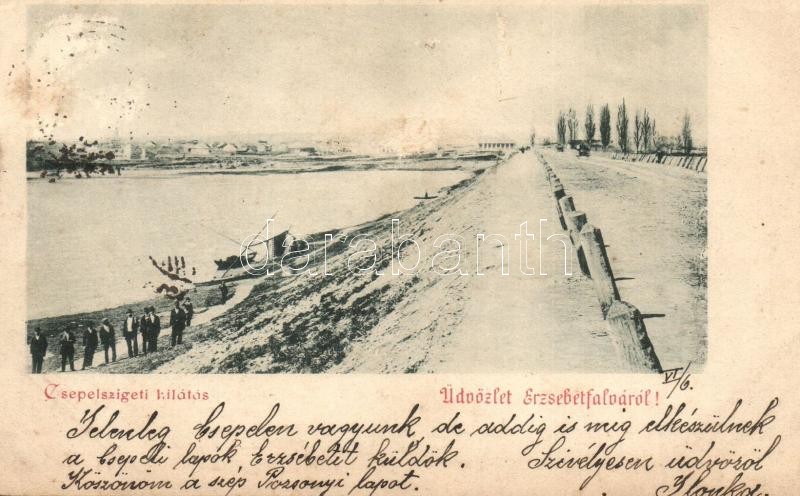 darabanth
Csepelszigeti kilátás
Üdvözlet Erzsébetfalváról!
VI/6.
Jelenleg Csepelen vagyunk, de addig is mig elkészülnek
a Csepeli lapok Erzsébetit küldök. Szivélyesen üdvözöl
Köszönöm a szép Pozsonyi lapot. Ilonka.